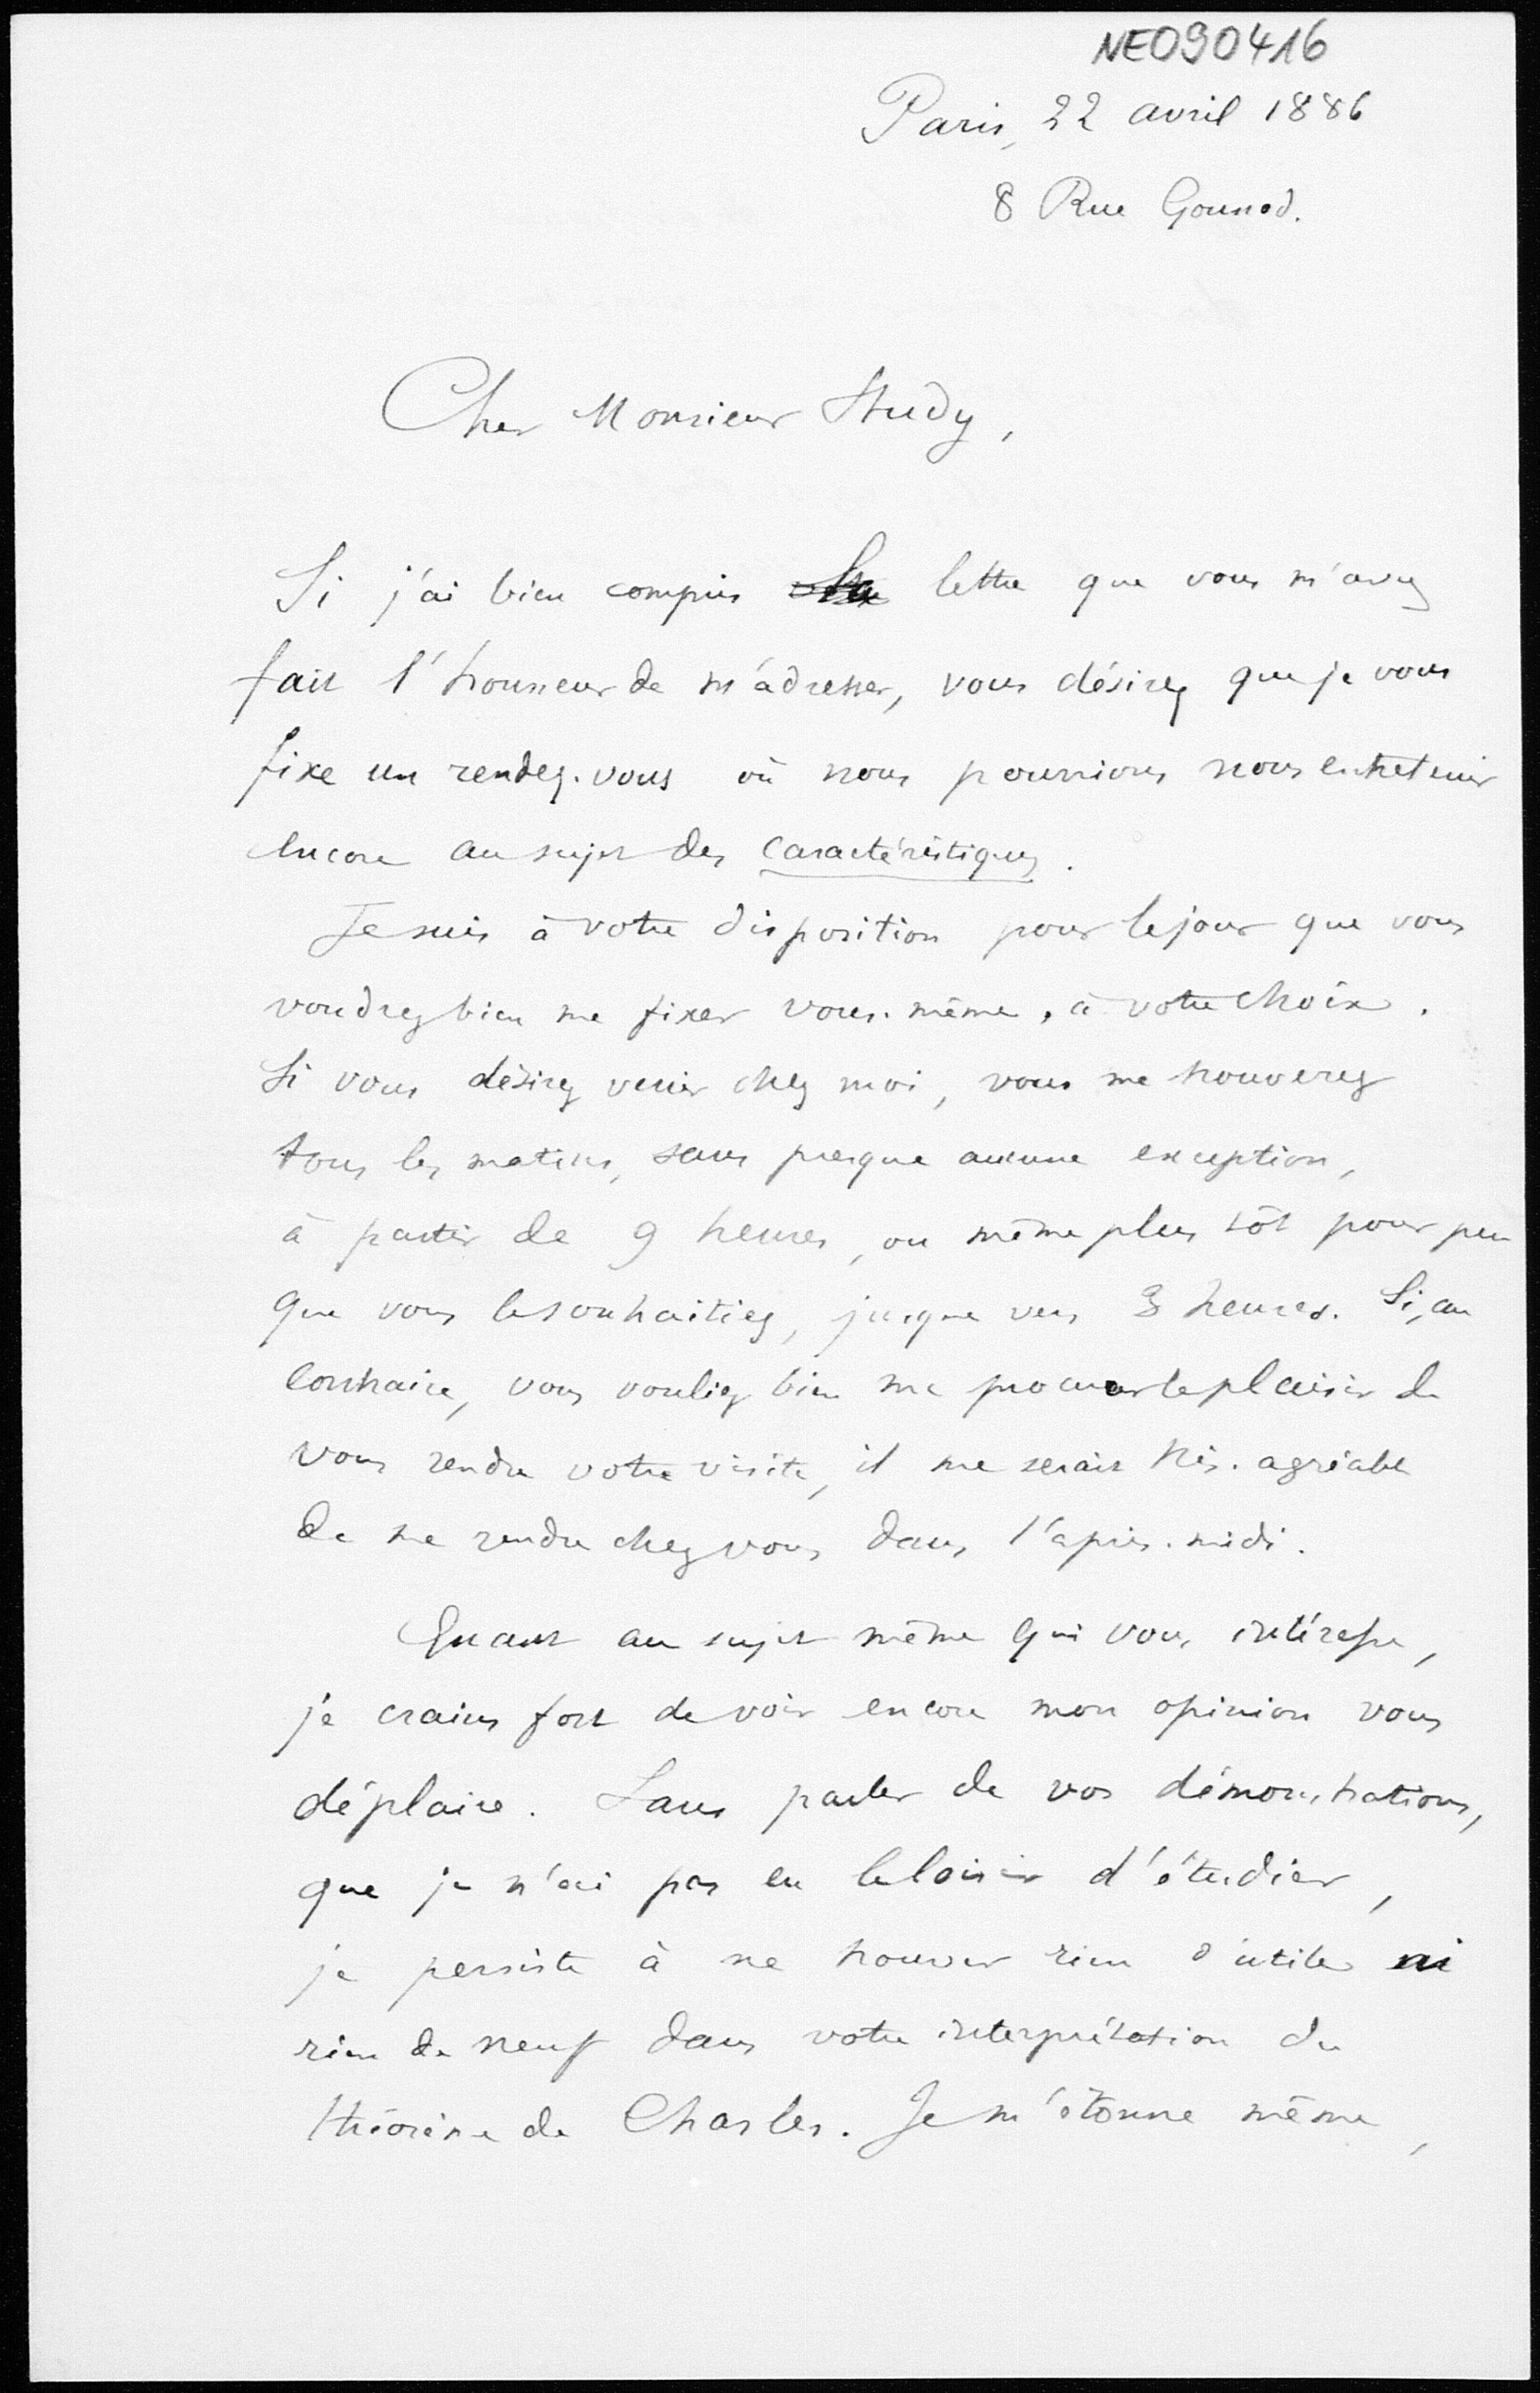 NE090416
Paris, 22 avril 1886
8 Rue Gounod.
Cher Monsieur Study,
Si j'ai bien compris la lettre que vous m'avez
fait l'honneur de m'adresser, vous désirez que je vous
fixe un rendez-vous où nous pourrions nous entretenir
encore au sujet des caractéristiques.
Je suis à votre disposition pour le jour que vous
voudrez bien me fixer vous-même, à votre choix.
Si vous désirez venir chez moi, vous me trouverez
tous les matins, sans presque aucune exception,
à partir de 9 heures, ou même plus tôt pour peu
que vous le souhaitiez, jusque vers 3 heures. Si, au
contraire, vous vouliez bien me procurer le plaisir de
vous rendre votre visite, il me serait très-agréable
de me rendre chez vous dans l'après-midi.
Quant au sujet même qui vous intéresse,
je crains fort de voir encore mon opinion vous
déplaire. Sans parler de vos démonstrations,
que je n'ai pas eu le loisir d'étudier,
je persiste à ne trouver rien d'utile ni
rien de neuf dans votre interprétation du
théorème de Chasles. Je m'étonne même,